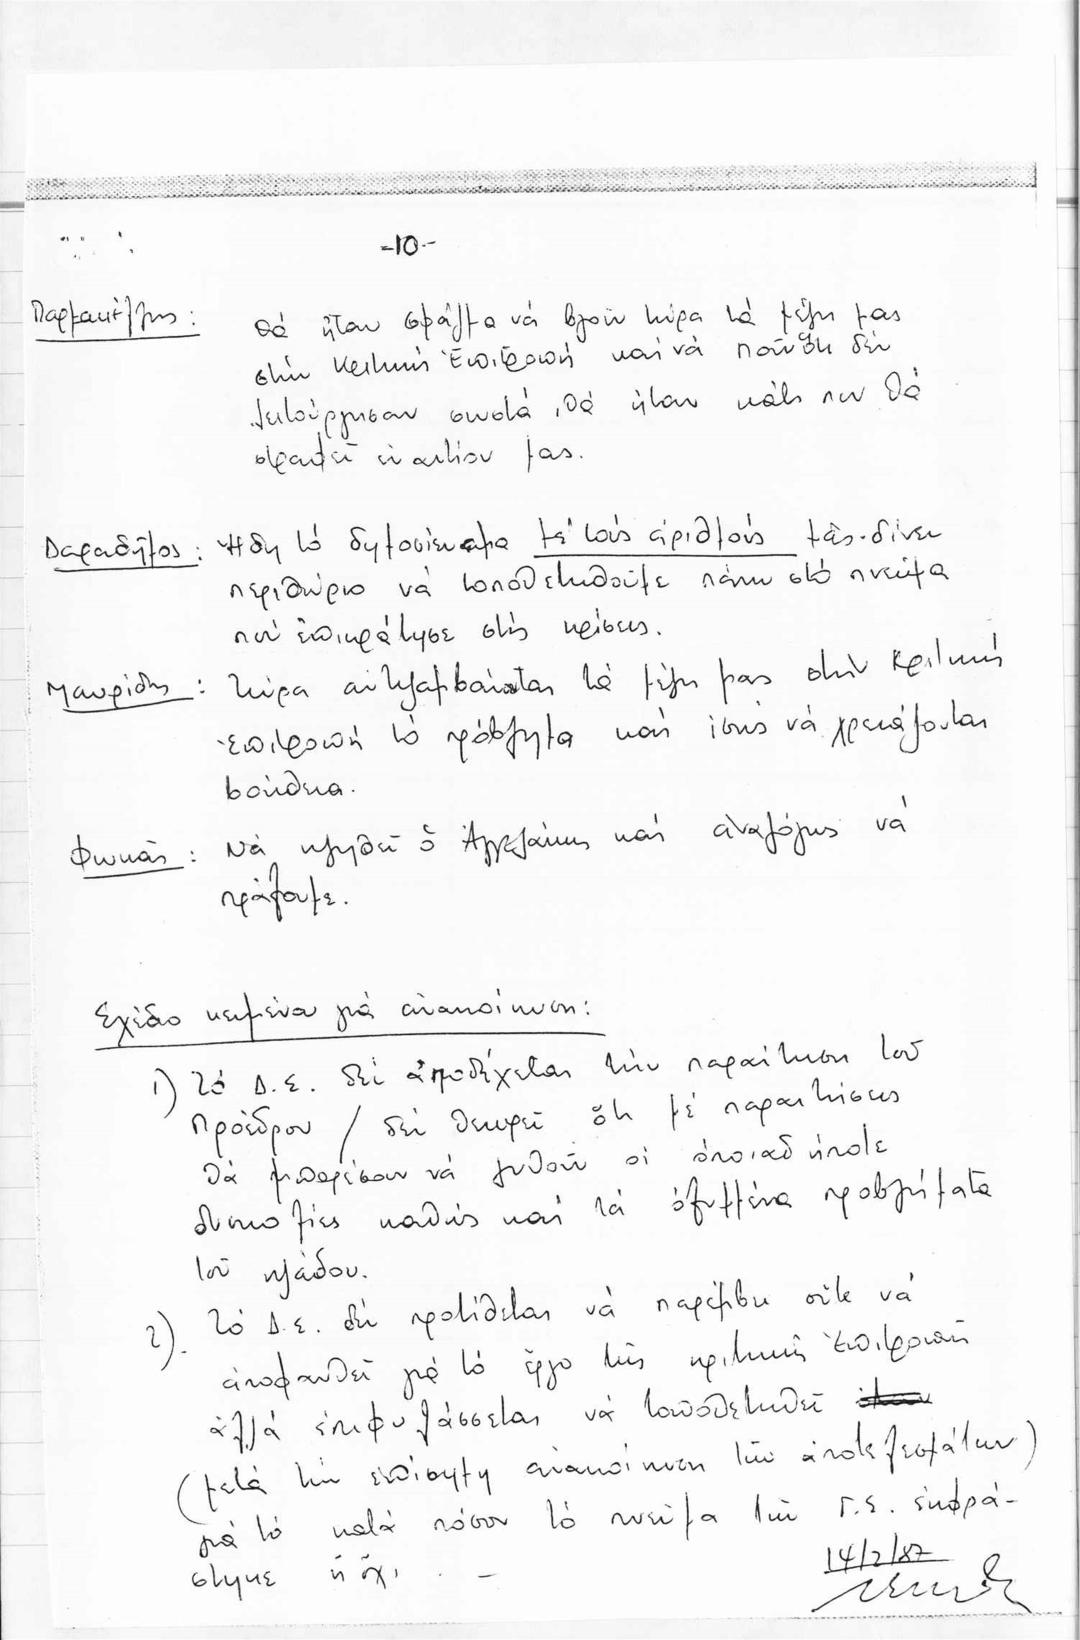 -10-
Παρμακέλης: Θά ἦταν σφάλμα νά βγοῦν τώρα τά μέλη μας
στήν Κριτική Ἐπιτροπή καί νά ποῦν ὅτι δέν
λειτούργησαν σωστά, θά ἦταν κάτι που θά
στραφεῖ ἐναντίον μας.
Δαραδῆμος: Ἤδη τό δημοσίευμα μέ τούς ἀριθμούς μᾶς δίνει
περιθώριο νά τοποθετηθοῦμε πάνω στό πνεῦμα
πού ἐπικράτησε στίς κρίσεις.
Μαυρίδης: Τώρα αντιλαμβάνεται τά μέλη μας στήν Κριτική
Ἐπιτροπή τό πρόβλημα καί ἴσως νά χρειάζονται
βοήθεια.
Φωκᾶς: Νά κληθεῖ ὁ Ἀγγελάκης καί ἀναλόγως νά
πράξουμε.
Σχέδιο κειμένου γιά ἀνακοίνωση:
1) Τό Δ.Ε. δέν ἀποδέχεται τήν παραίτηση τοῦ
Πρόεδρου / δέν θεωρεῖ ὅτι μέ παραιτήσεις
θά μπορέσουν νά λυθοῦν οἱ ὁποιαδήποτε
δυσκολίες καθώς καί τά ὀξυμμένα προβλήματα
τοῦ κλάδου.
2). Τό Δ.Ε. δέν προτίθεται νά παρέμβει οὔτε νά
ἀποφανθεῖ γιά τό ἔργο τῆς κριτικῆς Ἐπιτροπῆς
ἀλλά ἐπιφυλάσσεται νά τοποθετηθεῖ
(μετά τήν ἐπίσημη ἀνακοίνωση τῶν ἀποτελεσμάτων)
γιά τό κατά πόσον τό πνεῦμα τῆς Γ.Σ. ἐκφρά-
στηκε ἤ ὄχι. -
14/2/87